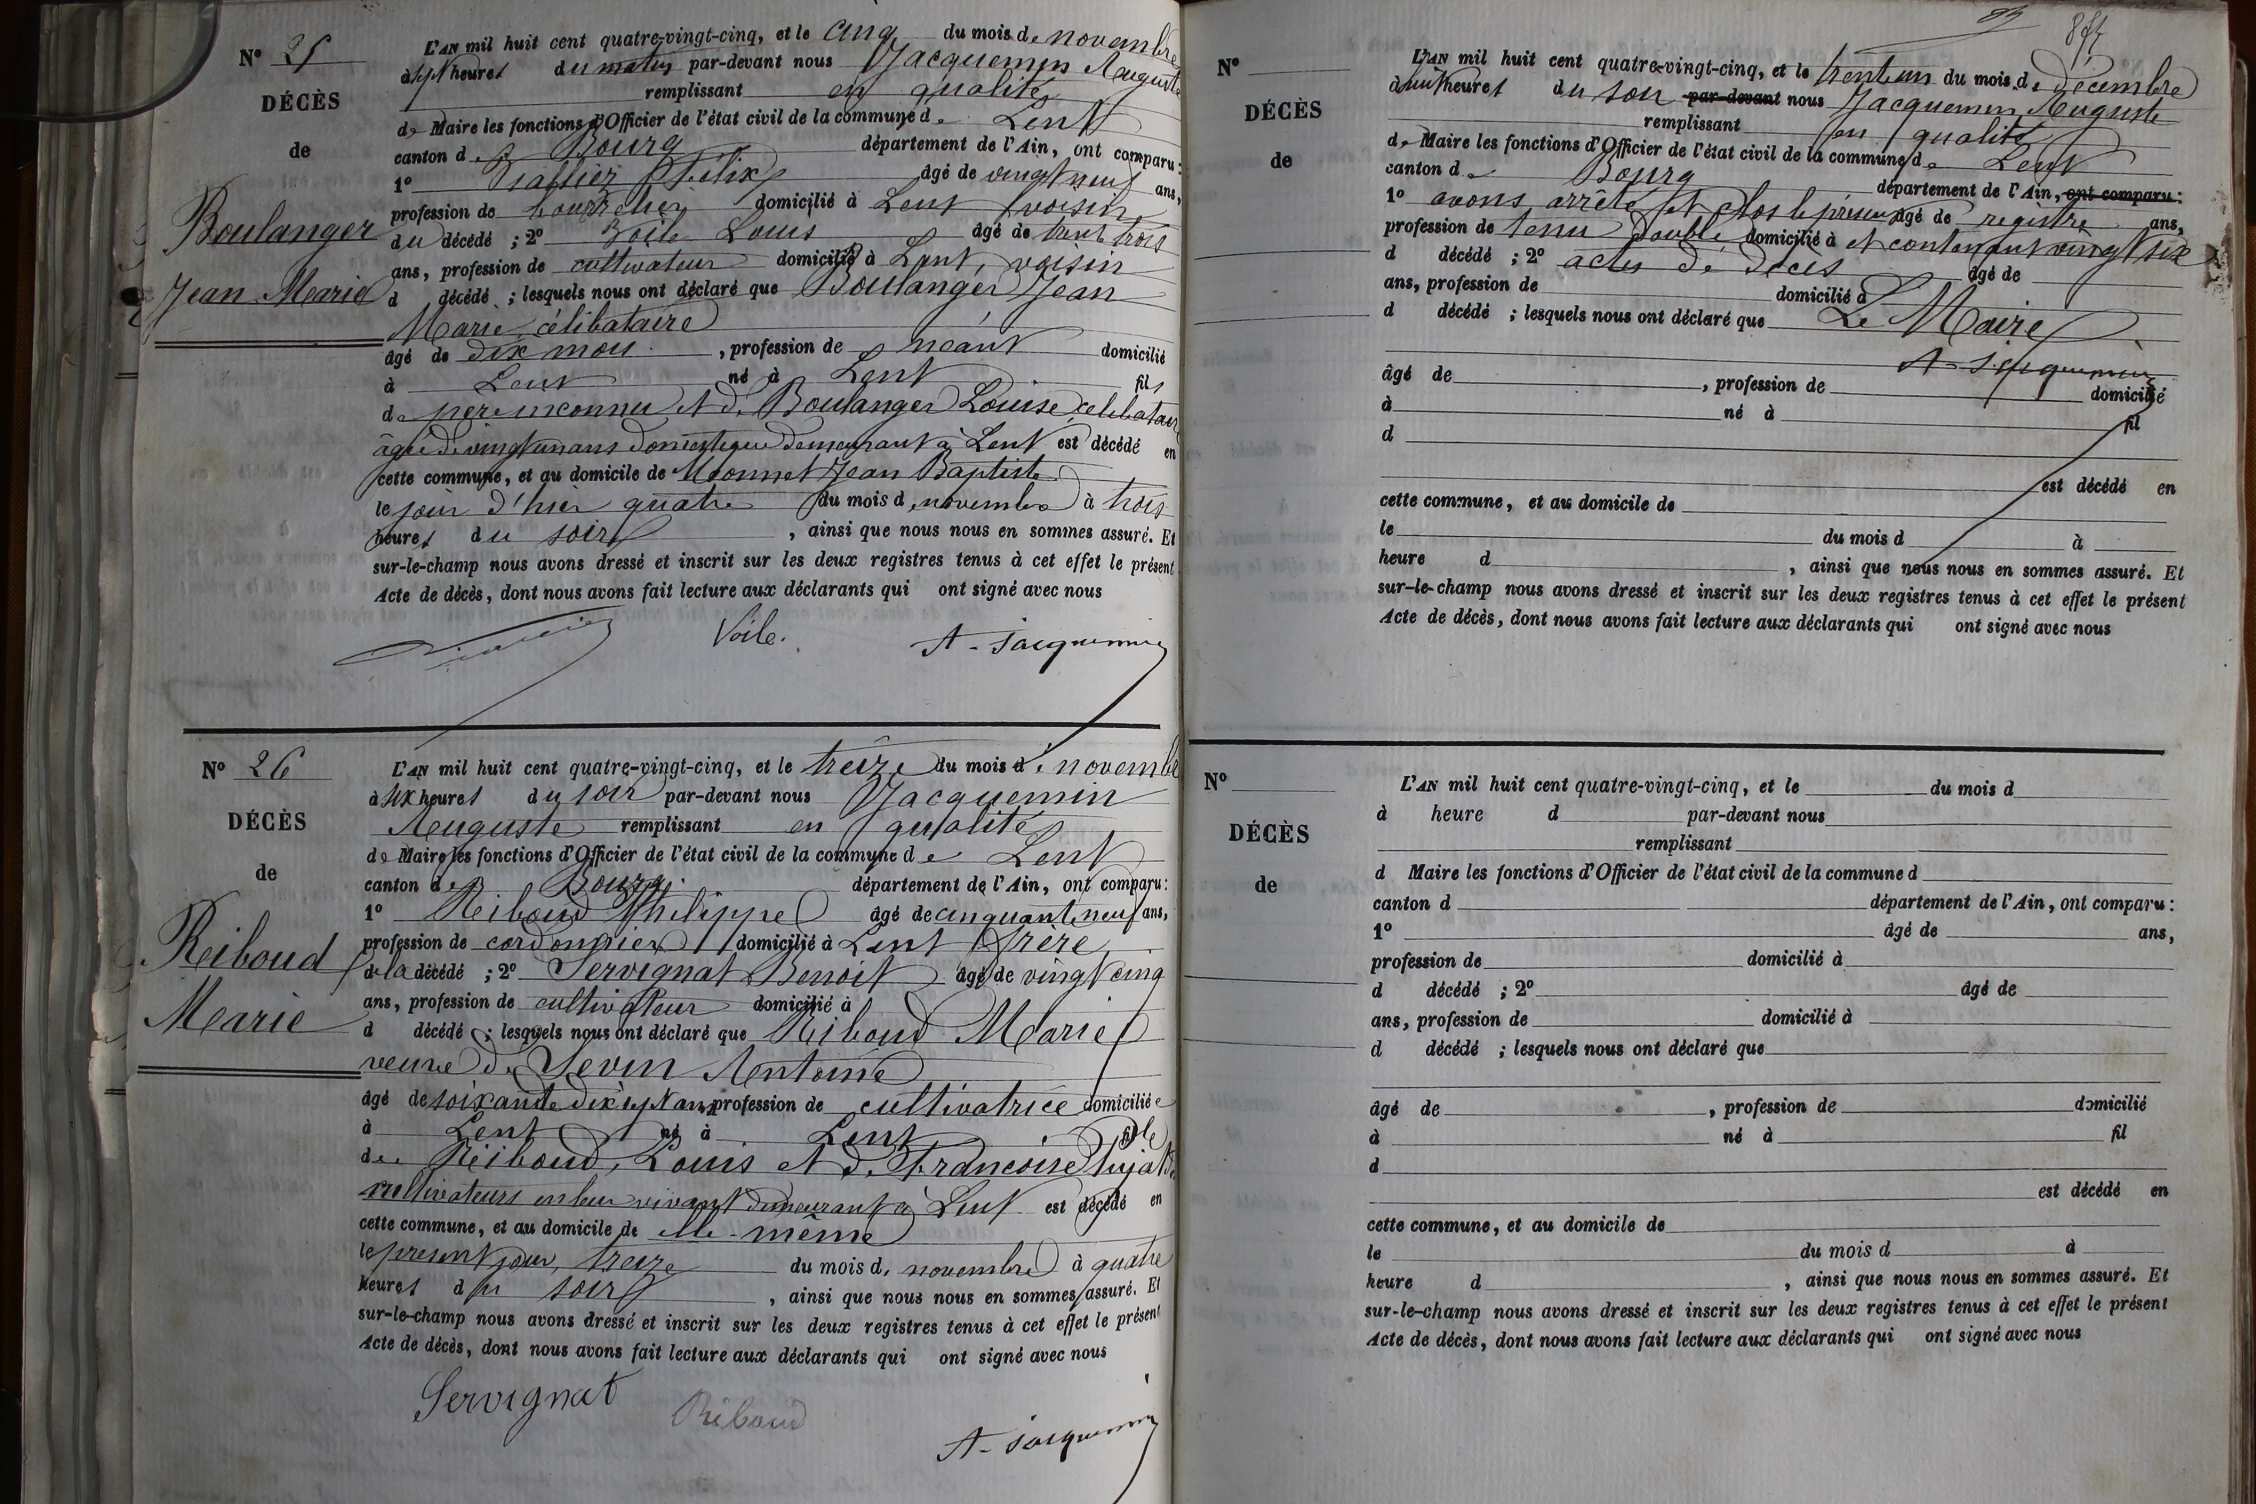 N° 25
DÉCÈS
de
Boulanger
Jean Marie
L'AN mil huit cent quatre-vingt-cinq, et le cinq du mois de novembre
à sept heures du matin par-devant nous Jacquemin Auguste
remplissant en qualité
de Maire les fonctions d'Officier de l'état civil de la commune de Lent
canton de Bourg département de l'Ain, ont comparu :
1° Phélix âgé de vingt neuf ans,
profession de bourrelier domicilié à Lent, voisin
du décédé ; 2° Voile Louis âgé de trente trois
ans, profession de cultivateur domicilié à Lent, voisin
d décédé ; lesquels nous ont déclaré que Boulanger Jean
Marie, célibataire
âgé de dix mois, profession de néant domicilié
à Lent né à Lent fils
de père inconnu et de Boulanger Louise célibataire
âgée de vingt un ans domestique demeurant à Lent est décédé en
cette commune, et au domicile de Monnet Jean Baptiste
le jour d'hier quatre du mois de novembre à trois
heures du soir, ainsi que nous nous en sommes assuré. Et
sur-le-champ nous avons dressé et inscrit sur les deux registres tenus à cet effet le présent
Acte de décès, dont nous avons fait lecture aux déclarants qui ont signé avec nous
Voile. A. Jacquemin
N° 26
DÉCÈS
de
Reiboud
Marie
L'AN mil huit cent quatre-vingt-cinq, et le treize du mois de novembre
à six heures du soir par-devant nous Jacquemin
Auguste remplissant en qualité
de Maire les fonctions d'Officier de l'état civil de la commune de Lent
canton de Bourg département de l'Ain, ont comparu :
1° Reiboud Philippe âgé de cinquante neuf ans,
profession de cordonnier domicilié à Lent frère
de la décédé ; 2° Servignat Benoit âgé de vingt cinq
ans, profession de cultivateur domicilié à
d décédé ; lesquels nous ont déclaré que Riboud Marie
veuve de Sevin Antoine
âgé de soixante dix sept ans, profession de cultivatrice domiciliée
à Lent né à Lent fille
de Reiboud, Louis et de Francoise
cultivateurs en leur vivant demeurant à Lent est décédé en
cette commune, et au domicile de elle-même
le présent jour, treize du mois de novembre à quatre
heures du soir, ainsi que nous nous en sommes assuré. Et
sur-le-champ nous avons dressé et inscrit sur les deux registres tenus à cet effet le présent
Acte de décès, dont nous avons fait lecture aux déclarants qui ont signé avec nous
Servignat Riboud A. Jacquemin
N°
DÉCÈS
de
L'AN mil huit cent quatre-vingt-cinq, et le trente un du mois de décembre
à huit heures du soir par-devant nous Jacquemin Auguste
remplissant en qualité
de Maire les fonctions d'Officier de l'état civil de la commune de Lent
canton de Bourg département de l'Ain, ont comparu :
1° avons arrêté et clos le présent âgé de registre ans,
profession de tenu double domicilié à et contenant vingt six
d décédé ; 2° actes de décès âgé de
ans, profession de domicilié à
d décédé ; lesquels nous ont déclaré que Le Maire
A Jacquemin
âgé de , profession de domicilié
à né à fil
d
est décédé en
cette commune, et au domicile de
le du mois d à
heure d , ainsi que nous nous en sommes assuré. Et
sur-le-champ nous avons dressé et inscrit sur les deux registres tenus à cet effet le présent
Acte de décès, dont nous avons fait lecture aux déclarants qui ont signé avec nous
N°
DÉCÈS
de
L'AN mil huit cent quatre-vingt-cinq, et le du mois d
à heure d par-devant nous
remplissant
d Maire les fonctions d'Officier de l'état civil de la commune d
canton d département de l'Ain, ont comparu :
1° âgé de ans,
profession de domicilié à
d décédé ; 2° âgé de
ans, profession de domicilié à
d décédé ; lesquels nous ont déclaré que
âgé de , profession de domicilié
à né à fil
d
est décédé en
cette commune, et au domicile de
le du mois d à
heure d , ainsi que nous nous en sommes assuré. Et
sur-le-champ nous avons dressé et inscrit sur les deux registres tenus à cet effet le présent
Acte de décès, dont nous avons fait lecture aux déclarants qui ont signé avec nous